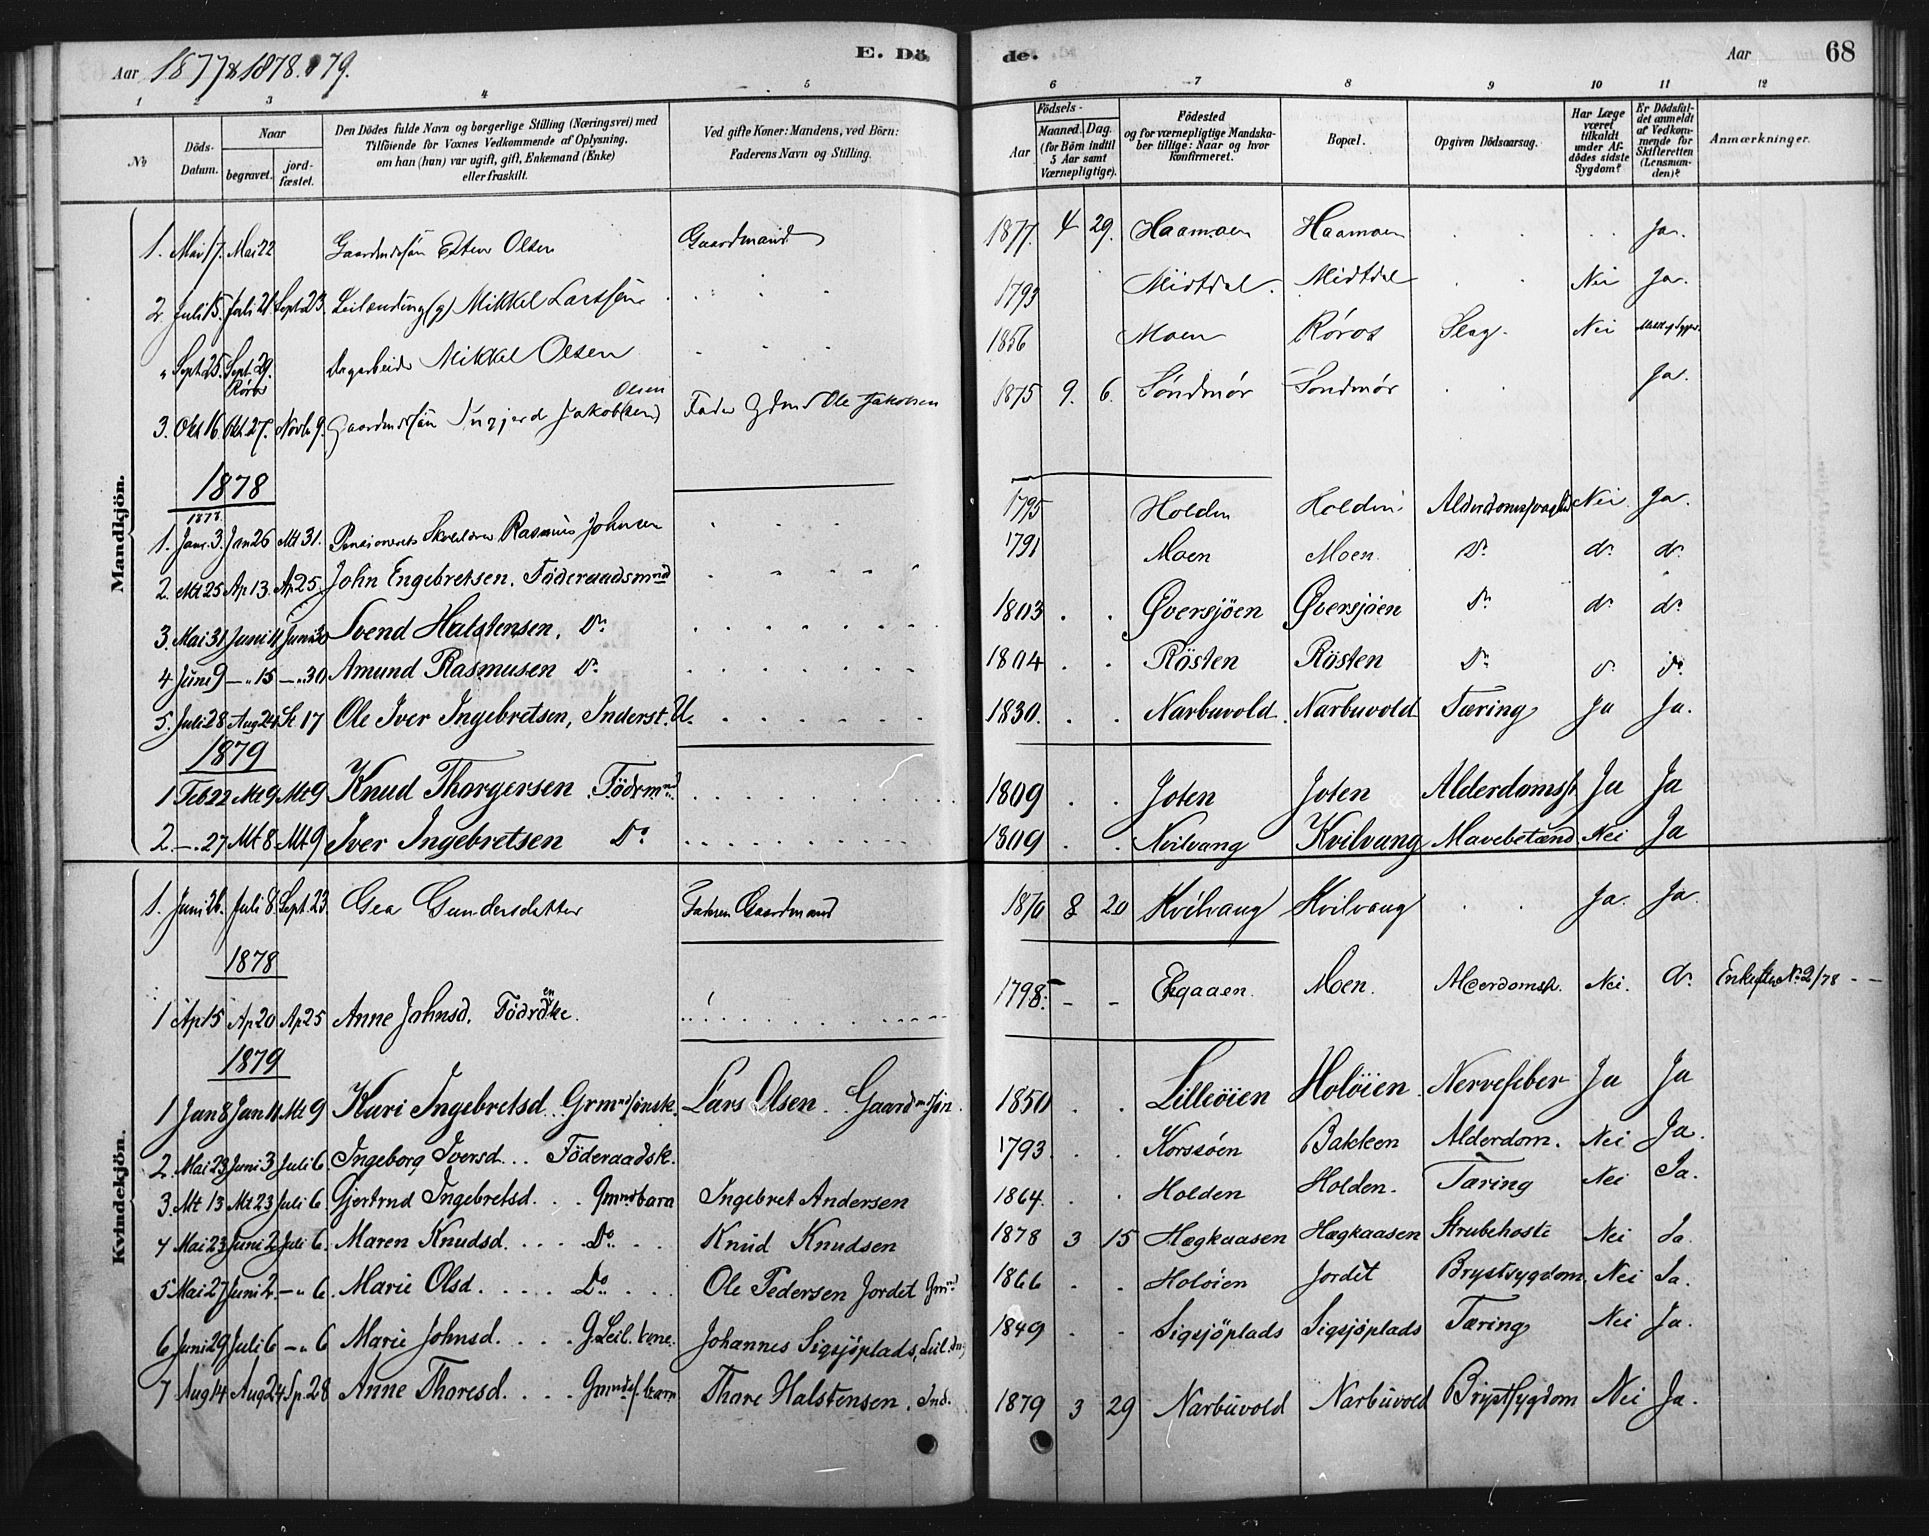 Aar 1877 & 1878. 79. E. Dö de. Aar 68
1 2 3 4 5 6 7 8 9 10 11 12
No Döds-Datum. Naar begravet. jord-fæstet. Den Dödes fulde Navn og borgerlige Stilling (Næringsvei) med Tilföiende for Voxnes Vedkommende af Oplysning. om han (hun) var ugift, gift, Enkemand (Enke) eller fraskilt. Ved gifte Koner: Mandens, ved Börn: Faderens Navn og Stilling. Födsels- Aar Maaned. Dag. (for Börn indtil 5 Aar samt Værnepligtige). Födested og for værnepligtige Mandska-ber tillige: Naar og hvor konfirmeret. Bopæl. Opgiven Dödsaarsag. Har Læge været tilkaldt under Af-dödes sidste Sygdom? Er Dödsfal-det anmeldt af Vedkom-mende for Skifteretten (Lensman-den)? Anmærkninger.
Mandkjön.
1. Mai 17. Mai 22 Gaardmdssön Olsen Gaardmand 1877. 4 29. Haamoen Haamoen Ja.
2. Juli 15. Juli 21. Sept 23. Leilænding (g) Mikkel Larssen 1793 Midtdal Midtdal Nei Ja.
" Sept 25. Sept. 29. Röros Dagarbeider Mikkel Olsen 1856 Moen Röros Slag. Nei
3. Okt 16. Okt. 27. Novb 9. Gaardmdssön Ingjerd Jakob(sen) Olsen Fader Gdmd Ole Jakobsen 1875 9. 6. Söndmör Söndmör Ja.
1878
1. 1878. Janr. 3. Jan 26 Mt 31. Pensioneret Skolelærer Rasmus Johnsen 1795 Holden Holden Nei Ja.
2. Mt 25 Ap 13. Ap 25. John Engebretsen. Föderaadsmnd 1791 Moen Moen. Do do do
3. Mai 31 Juni 11 Juni Svend Halstensen. Do 1803 Översjöen Översjöen Do do do
4 June 9 -"- 15 -"- 30 Amund Rasmusen Do 1804 Rösten Rösten Do do do
5. Juli 28 Aug 24 St 17 Ole Iver Ingebretsen, Inderst. U. 1830. Narbuvold Narbuvold Tæring Ja Ja.
1879
1 Feb 22 Mt 9 Mt 9 Knud Thorgersen. Födrmnd 1809 Joten Joten Alderdomssv. Ja Ja
2. -"- 27 Mt 8 Mt 9 Iver Ingebretsen Do 1809 Kvilvang Kvilvang Mavebetænd. Nei Ja
Kvindekjön.
1. Juni 26. Juli 8. Sept. 23. Gea Gundersdatter Faderen Gaardmand 1870 8 20 Kvilvang Kvilvang Ja. Ja.
1878
1 Ap 15 Ap 20 Ap 25 Anne Johnsd. Födrdenke. 1798. Moen. Alderdomssv. Nei. do Enke efter No 2/78
1879
1 Jan 8 Jan 11 Mt 9 Kari Ingebretsd. Grmndsönsk. Lars Olsen. Gaardmssön. 1850 Lilleöien Holöien Nervefeber Ja Ja
2. Mai 23 Juni 3 Juli 6 Ingeborg Iversd... Föderaadsk. 1793. Korssöen Bakken Alderdom. Nei Ja.
3. Mt 13 Mt 23 Juli 6. Gjertrud Ingebretsd. Gmndbarn Ingebret Andersen 1864. Holden Holden. Tæring Nei Ja.
4 Mai 23 Juni 2 Juli 6. Maren Knudsd. Do Knud Knudsen 1878 3 15 Hægkaasen Hægkaasen Strubehoste Nei Ja.
5 Mai 27 Juni 2. -"- 6. Marie Olsd. Do Ole Pedersen Jordet Gmnd 1866 Holöien Jordet Brystsygdom Nei Ja.
6 Juni 29 Juli 6 -"- 6 Marie Johnsd. G. Leil. kone. Johannes Sigsjöplads, Leil. 1849 Sigsjöplads Sigsjöplads Tæring Nei Ja.
7 Aug 14 Aug 24 Sp. 28 Anne Thoresd. Gmndsf. barn Thore Halstensen. Ind. 1879 3 29 Narbuvold Narbuvold Brystsygdom Nei Ja.